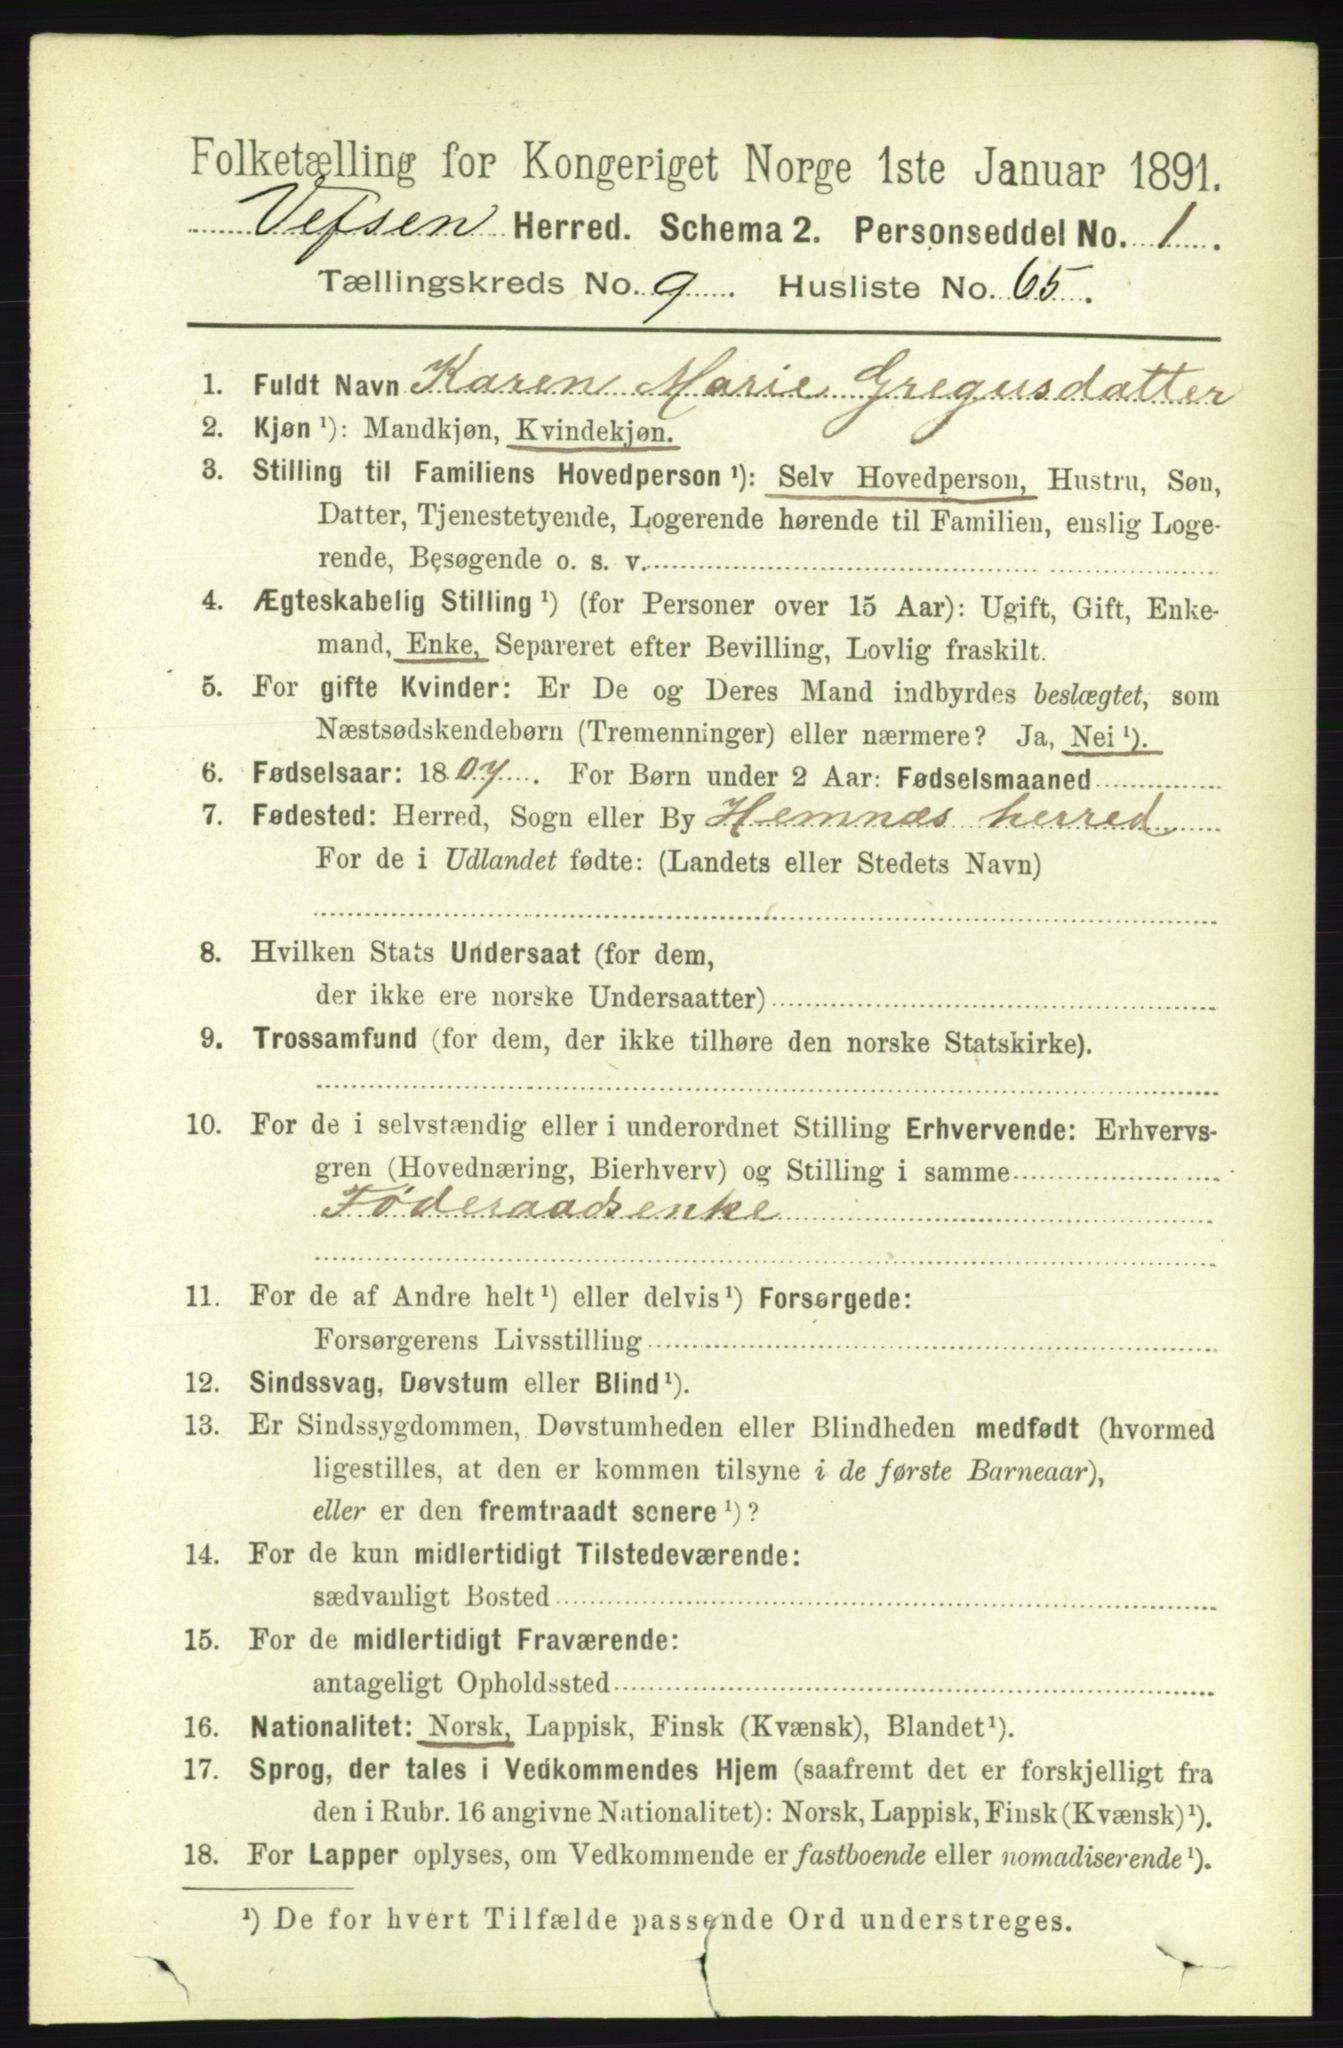 Folketælling for Kongeriget Norge 1ste Januar 1891.
Vefsen Herred. Schema 2. Personseddel No. 1.
Tællingskreds No. 9. Husliste No. 65.
1. Fuldt Navn Karen Marie Gregusdatter
2. Kjøn ¹): Mandkjøn, Kvindekjøn.
3. Stilling til Familiens Hovedperson ¹): Selv Hovedperson, Hustru, Søn,
Datter, Tjenestetyende, Logerende hørende til Familien, enslig Loge-
rende, Besøgende o. s. v.
4. Ægteskabelig Stilling ¹) (for Personer over 15 Aar): Ugift, Gift, Enke-
mand, Enke, Separeret efter Bevilling, Lovlig fraskilt.
5. For gifte Kvinder: Er De og Deres Mand indbyrdes beslægtet, som
Næstsødskendebørn (Tremenninger) eller nærmere? Ja, Nei ¹).
6. Fødselsaar: 1807. For Børn under 2 Aar: Fødselsmaaned
7. Fødested: Herred, Sogn eller By Hemnæs herred
For de i Udlandet fødte: (Landets eller Stedets Navn)
8. Hvilken Stats Undersaat (for dem,
der ikke ere norske Undersaatter)
9. Trossamfund (for dem, der ikke tilhøre den norske Statskirke).
10. For de i selvstændig eller i underordnet Stilling Erhvervende: Erhvervs-
gren (Hovednæring, Bierhverv) og Stilling i samme
Föderaadsenke
11. For de af Andre helt ¹) eller delvis ¹) Forsørgede:
Forsørgerens Livsstilling
12. Sindssvag, Døvstum eller Blind ¹).
13. Er Sindssygdommen, Døvstumheden eller Blindheden medfødt (hvormed
ligestilles, at den er kommen tilsyne i de første Barneaar),
eller er den fremtraadt senere ¹)?
14. For de kun midlertidigt Tilstedeværende:
sædvanligt Bosted
15. For de midlertidigt Fraværende:
antageligt Opholdssted
16. Nationalitet: Norsk, Lappisk, Finsk (Kvænsk), Blandet ¹).
17. Sprog, der tales i Vedkommendes Hjem (saafremt det er forskjelligt fra
den i Rubr. 16 angivne Nationalitet): Norsk, Lappisk, Finsk (Kvænsk) ¹).
18. For Lapper oplyses, om Vedkommende er fastboende eller nomadiserende ¹).
¹) De for hvert Tilfælde passende Ord understreges.